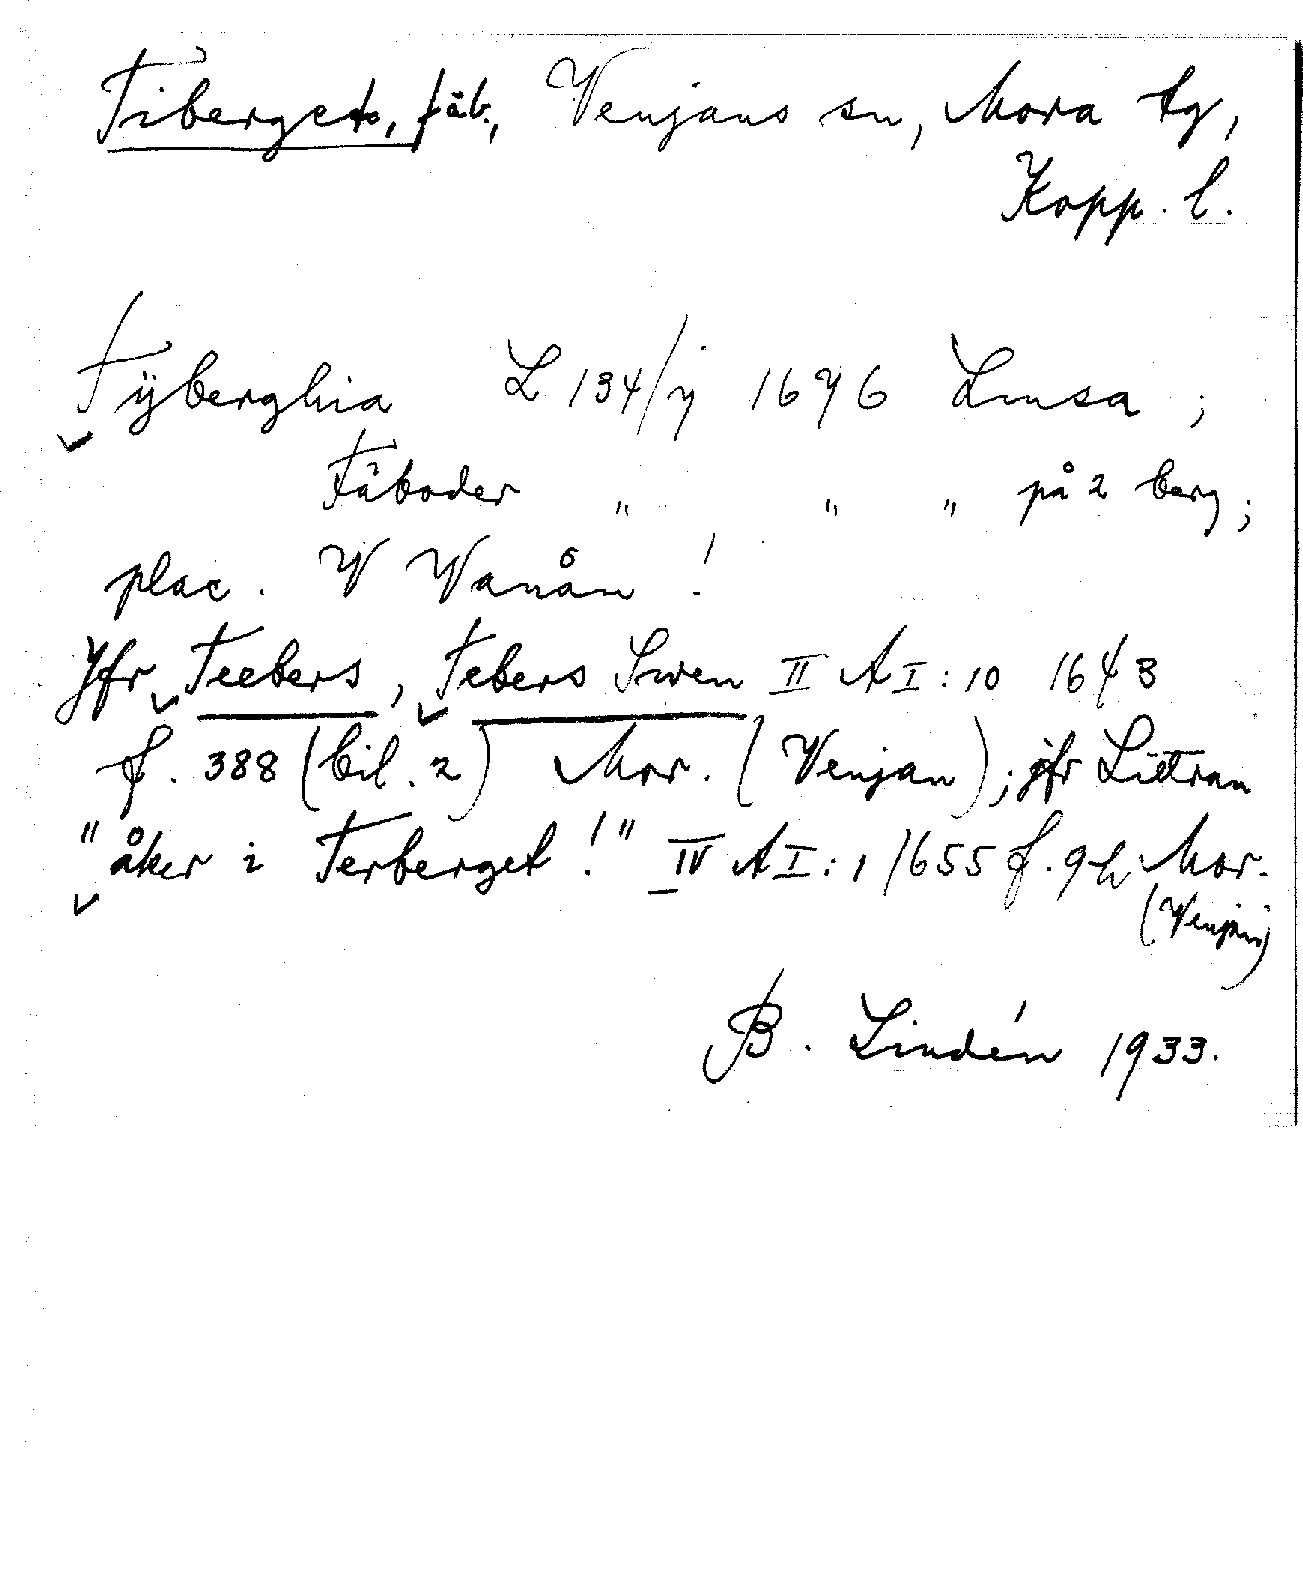 Tibergets, fäb., Venjans sn, Mora tg,
Kopp. l.
Tÿberghia L 134/7 1676 Limsa ;
Fäboder " " " på 2 berg ;
plac. V Vanån !
Jfr Teebers, Tebers Swen II A I : 10 1643
f. 388 (bil. 2) Mor. (Venjan) ; jfr Littran
"åker i Terberget !" IV A I : 1 1655 f. 92 Mor.
(Venjan)
B. Lindén 1933.